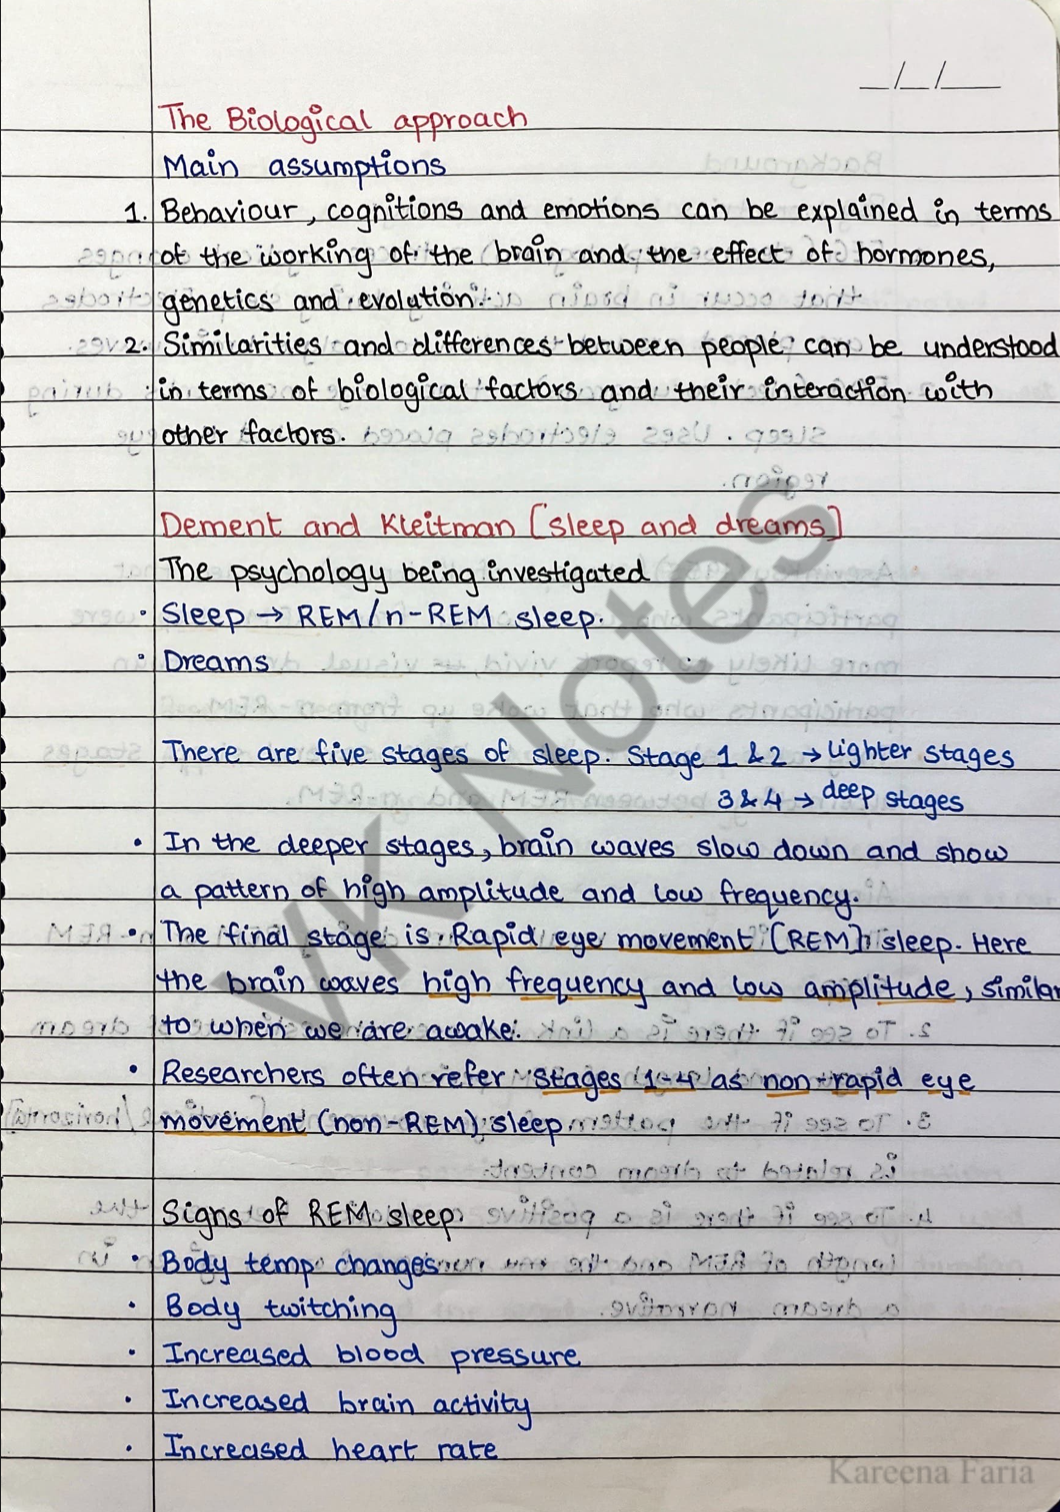 _/_/__
The Biological approach
Main assumptions
1. Behaviour, cognitions and emotions can be explained in terms
of the working of the brain and the effect of hormones,
genetics and evolution.
2. Similarities and differences between people can be understood
in terms of biological factors and their interaction with
other factors.
Dement and Kleitman [sleep and dreams]
The psychology being investigated
• Sleep → REM/n-REM sleep.
• Dreams
There are five stages of sleep. Stage 1 & 2 → Lighter stages
3 & 4 → deep stages
• In the deeper stages, brain waves slow down and show
a pattern of high amplitude and low frequency.
• The final stage is Rapid eye movement [REM] sleep. Here
the brain waves high frequency and low amplitude, similar
to when we are awake.
• Researchers often refer stages 1-4 as non-rapid eye
movement (non-REM) sleep
Signs of REM sleep
• Body temp changes
• Body twitching
• Increased blood pressure
• Increased brain activity
• Increased heart rate
VK Notes
Kareena Faria